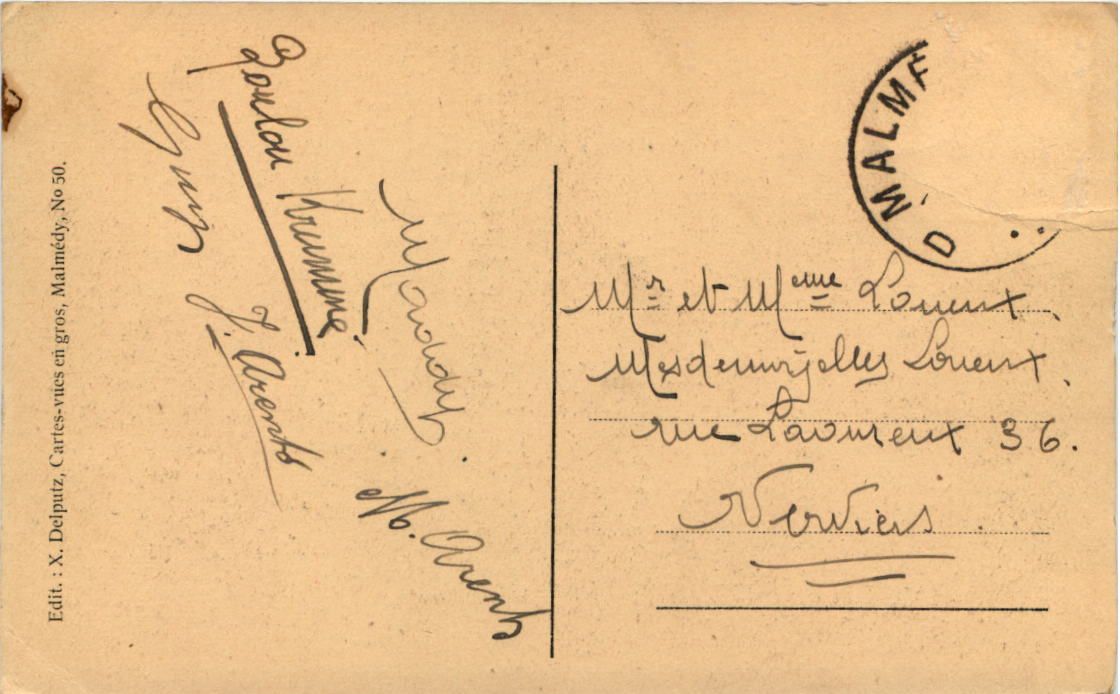 Edit. : X. Delputz, Cartes-vues en gros, Malmédy, No 50.
Loulou Krumme
J. Arents
Maddy.
M. Arents
D MALME
Mr et Meme Loueux.
Mesdemoiselles Loueux.
rue Laoureux 36.
Verviers